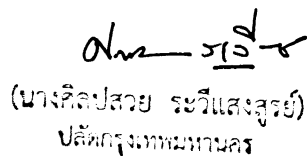 (นางศิลปสวย ระวีแสงสูรย์)
ปลัดกรุงเทพมหานคร